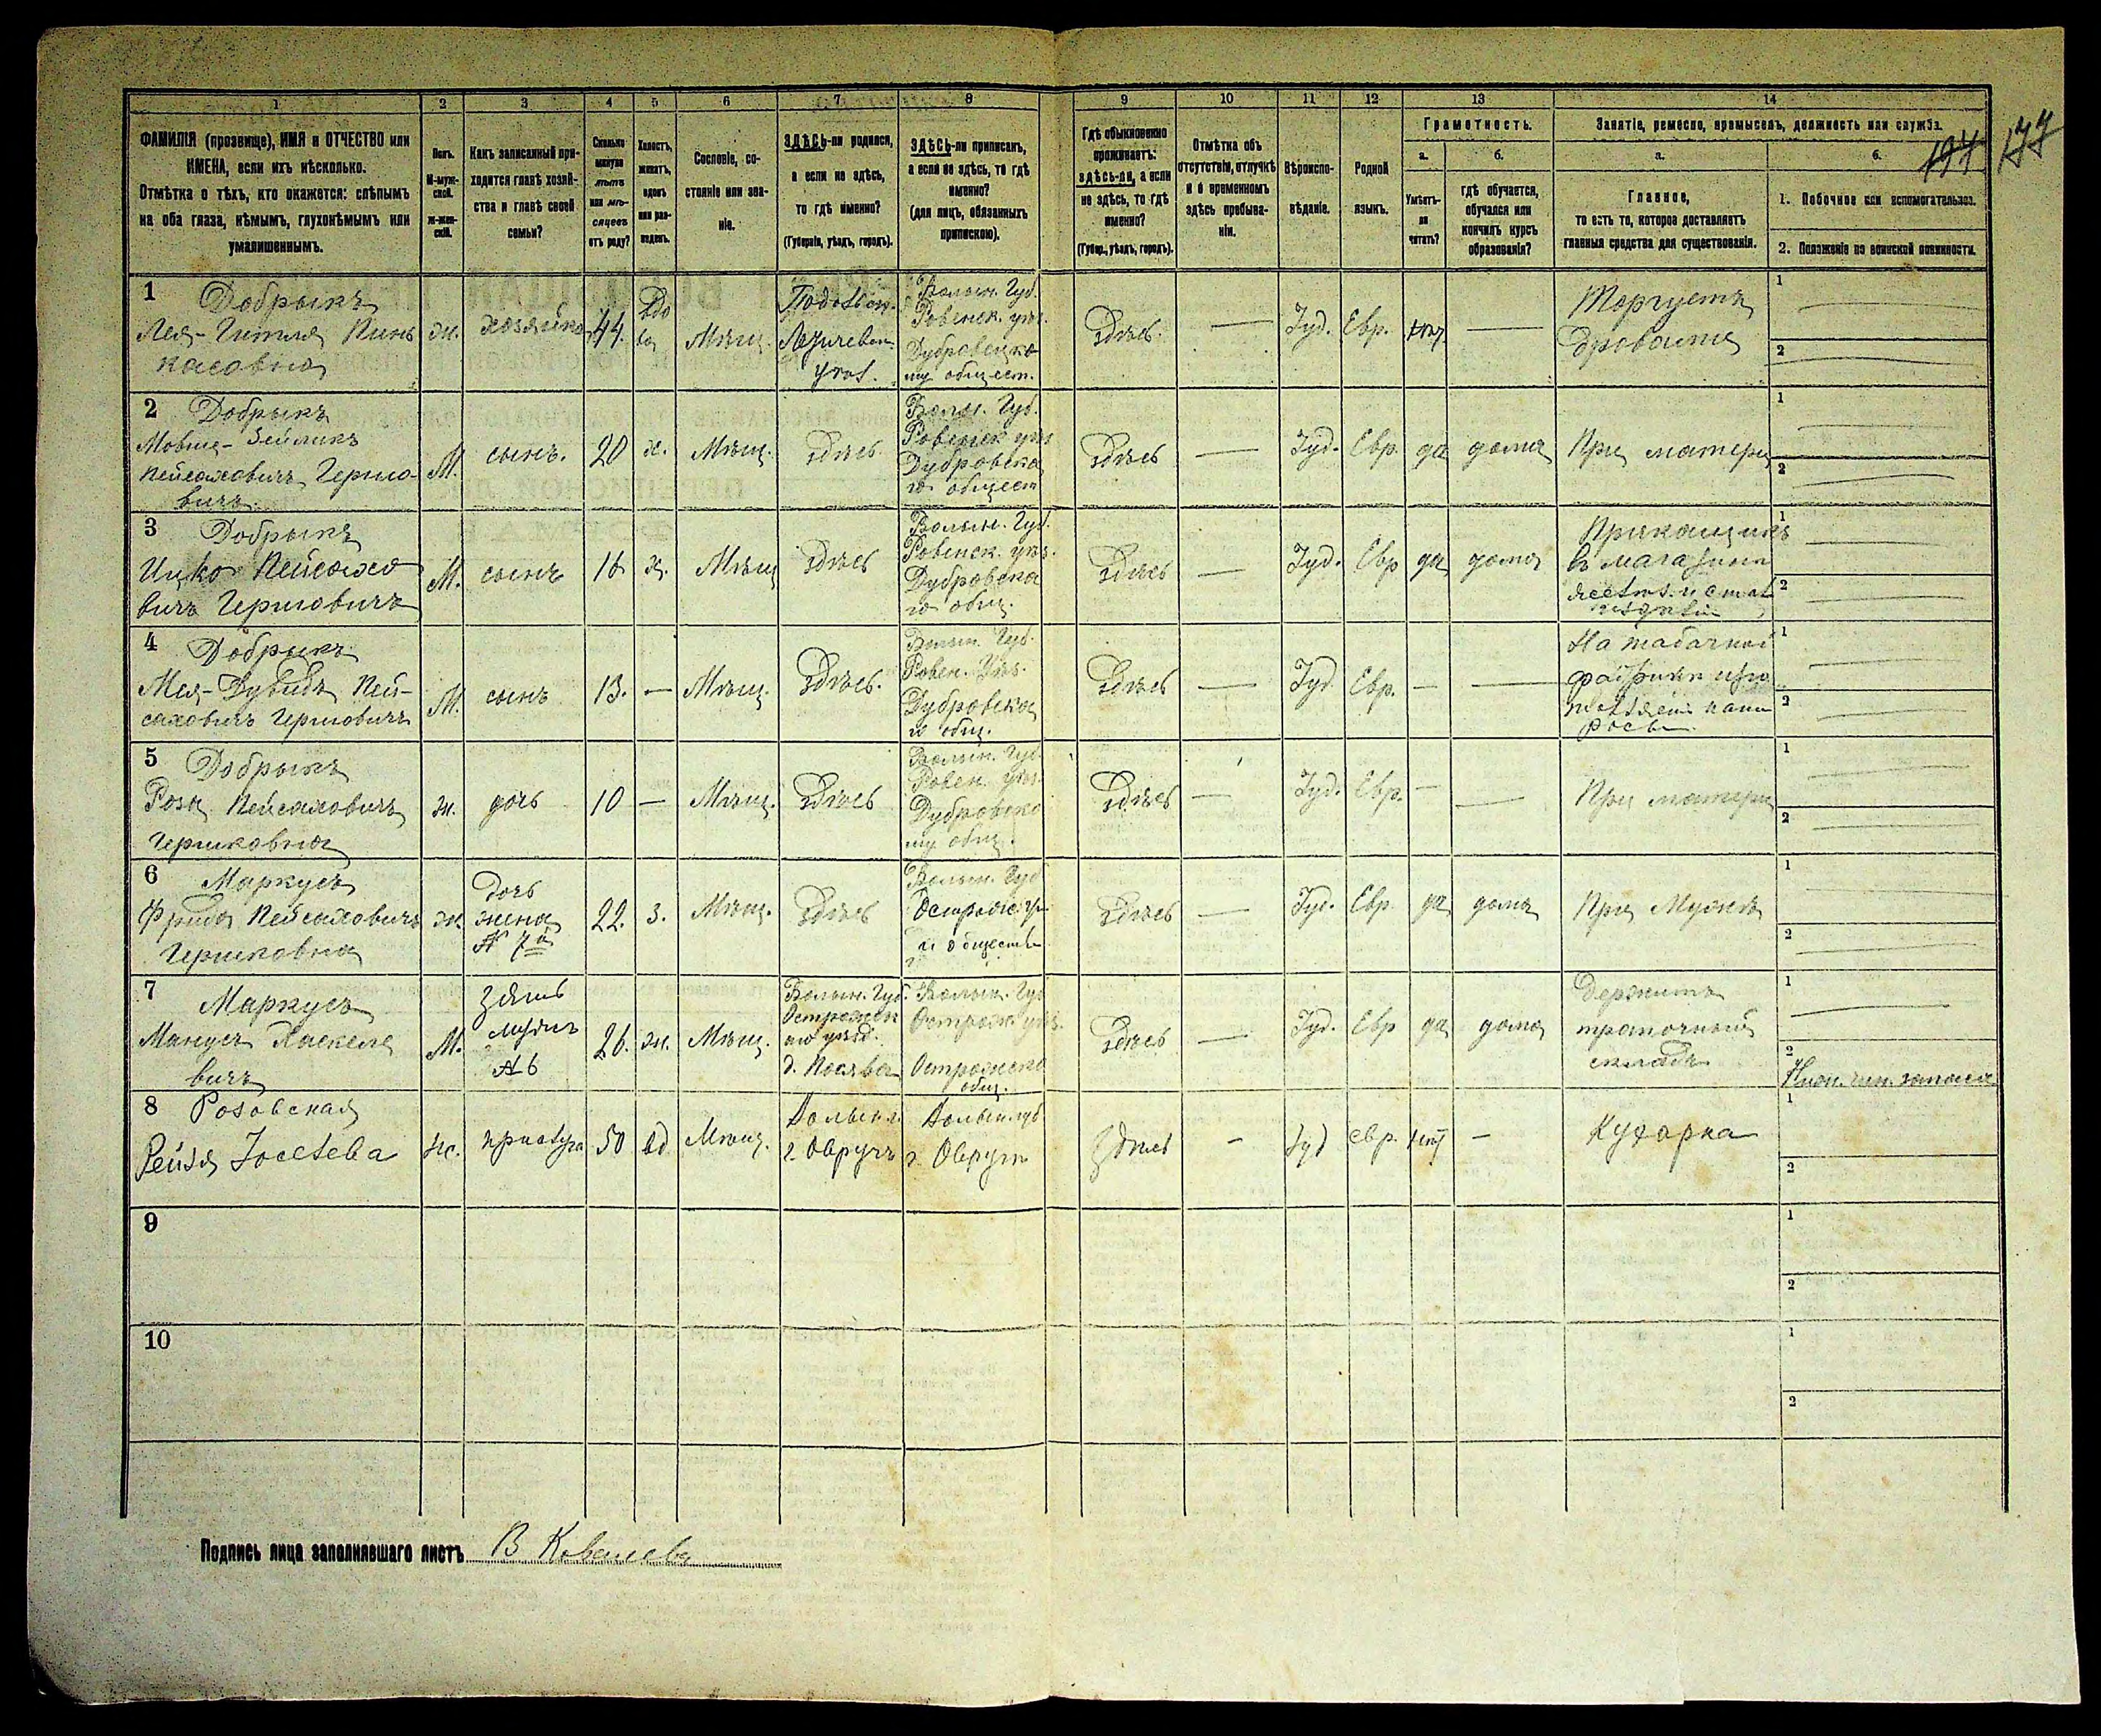 1 2 3 4 5 6 7 8 9 10 11 12 13 14
ФАМИЛІЯ (прозвище), ИМЯ и ОТЧЕСТВО или
ИМЕНА, если ихъ нѣсколько.
Отмѣтка о тѣхъ, кто окажется: слѣпымъ
на оба глаза, нѣмымъ, глухонѣмымъ или
умалишеннымъ.
Полъ.
М-муж-
ской.
ж-жен-
скій.
Какъ записанный при-
ходится главѣ хозяй-
ства и главѣ своей
семьи?
Сколько
минуло
лѣтъ
или мѣ-
сяцевъ
отъ роду?
Холостъ,
женатъ,
вдовъ
или раз-
веденъ.
Сословіе, со-
стояніе или зва-
ніе.
ЗДѢСЬ-ли родился,
а если не здѣсь,
то гдѣ именно?
(Губернія, уѣздъ, городъ).
ЗДѢСЬ-ли приписанъ,
а если не здѣсь, то гдѣ
именно?
(для лицъ, обязанныхъ
припискою).
Гдѣ обыкновенно
проживаетъ:
здѣсь-ли, а если
не здѣсь, то гдѣ
именно?
(Губер., уѣздъ, городъ).
Отмѣтка объ
отсутствіи, отлучкѣ
и о временномъ
здѣсь пребыва-
ніи.
Вѣроиспо-
вѣданіе.
Родной
языкъ.
Грамотность.
а.
Умѣетъ-
ли
читать?
б.
гдѣ обучается,
обучался или
кончилъ курсъ
образованія?
Занятіе, ремесло, промыселъ, должность или служба.
а.
Главное,
то есть то, которое доставляетъ
главныя средства для существованія.
б.
1. Побочное или вспомогательное.
2. Положеніе по воинской повинности.
177
1 Добрыкъ
Лея-Гитля Пинь
касовна
ж.
хозяйка
44.
Вдо
ва
Мѣщ.
Подольск.
Летичевск.
уѣз.
Волын. Губ.
Ровенск. уѣз.
Дубровицко
му общест.
Здѣсь.
Іуд.
Евр.
нѣт
Торгуетъ
дровами
1
2
2 Добрыкъ
Мовше-Зейликъ
Пейсаховичъ Гершо-
вичъ
М.
сынъ.
20
х.
Мѣщ.
здѣсь
Волын. Губ.
Ровенск уѣз
Дубровска
го общест
Здѣсь
Іуд.
Евр.
да
дома
При матери
1
2
3 Добрыкъ
Ицко Пейсахо
вичъ Гершовичъ
М.
сынъ
16
х.
Мѣщ
здѣсь
Волын. Губ.
Ровенск. уѣз.
Дубровска
го общ.
Здѣсь
Іуд.
Евр
да
дома
Прикащикъ
въ магазинѣ
1
2
4 Добрыкъ
Мея-Дувидъ Пей-
саховичъ Гершовичъ
М.
сынъ
13.
Мѣщ.
Здѣсь.
Волын. Губ.
Ровен. Уѣз.
Дубровска
го общ.
Здѣсь
Іуд
Евр.
На табачной
фабрикѣ
1
2
5 Добрыкъ
Роза Пейсаховичъ
Гершковна
ж.
дочь
10
Мѣщ.
Здѣсь
Волын. Губ.
Ровен. уѣз.
Дубровско
му общ.
Здѣсь
Іуд.
Евр.
При матери
1
2
6 Маркусъ
Фрида Пейсаховичъ
Гершковна
ж.
дочь
жена
№ 7й
22.
з.
Мѣщ.
Здѣсь
Волын. Губ
Здѣсь
Іуд.
Евр.
да
дома
При Мужѣ
1
2
7 Маркусъ
Манусъ Хаскеле
вичъ
М.
зять
мужъ
№ 6
26.
ж.
Мѣщ.
Волын. Губ.
Острожск
аго уѣзд.
Волын. Губ
Острож. уѣз.
Острожско
общ.
Здѣсь
Іуд.
Евр
да
дома
Держитъ
тряпочный
складъ
1
2
Нижн. чин. запаса
8 Розовская
Рейзя Іосевева
ж.
прислуга
50
вд
Мѣщ.
Волын г.
г. Овручъ
Волын. губ
г. Овручъ
Здѣсь
Іуд
евр.
нѣт
Кухарка
1
2
9
1
2
10
1
2
Подпись лица заполнявшаго листъ В Ковалева